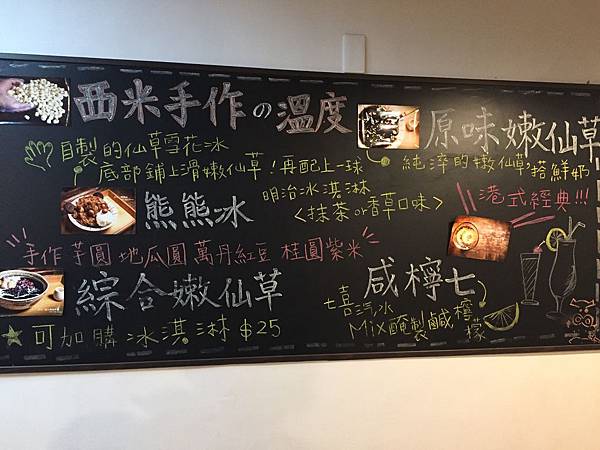 西米手作の溫度
自製的仙草雪花冰
底部鋪上滑嫩仙草!再配上一球
明治冰淇淋
<抹茶or香草口味>
熊熊冰
手作 芋圓 地瓜圓 萬丹紅豆 桂圓紫米
綜合嫩仙草
可加購 冰淇淋 $25
原味嫩仙草
純淬的嫩仙草,搭鮮奶
港式經典!!!
咸檸七
七喜汽水
Mix醃製鹹檸檬